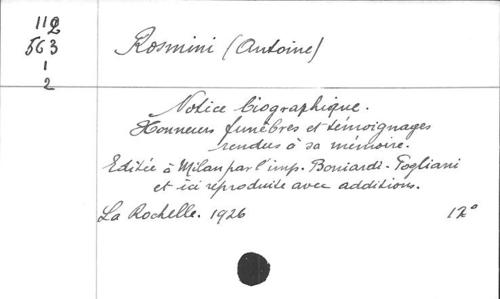 112
563
1
2
Rosmini (Antoine)
Notice biographique.
Honneurs funèbres et témoignages
rendus à sa mémoire.
Editée à Milan par l'imp. Boniardi-Pogliani
et ici reproduite avec additions.
La Rochelle. 1926 12°